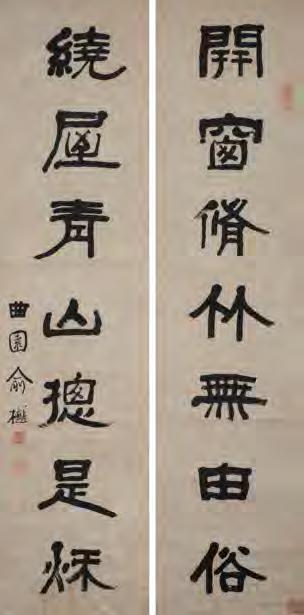 開窗脩竹無由俗
繞屋青山摠是秌
曲園俞樾